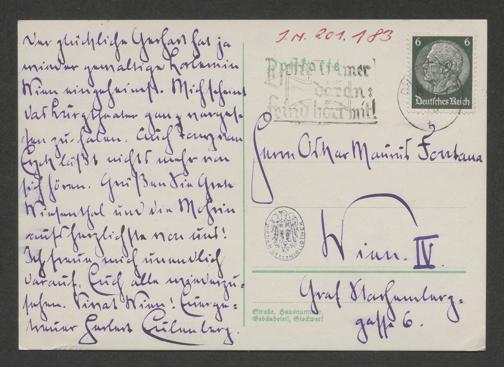 Der glückliche Gerhart hat ja
wieder gewaltige Lorbeeren in
Wien eingeheimst. Mich scheint
das Burgtheater ganz verges-
sen zu haben. Auch von dem
läßt nichts mehr von
sich hören. Grüßen Sie Grete
Wiesenthal und die
aufs herzlichste von uns!
Ich freue mich unendlich
darauf, Euch alle wiederzu-
sehen. Vivat Wien! Euer ge-
treuer Herbert Eulenberg.
J.N. 201.183
Postkarte
immer
daran:
Feind hört mit!
6 6
Deutsches Reich
Herrn Oskar Maurus Fontana
Wien. IV.
Graf Starhemberg-
gasse 6.
Straße, Hausnummer,
Gebäudeteil, Stockwerk